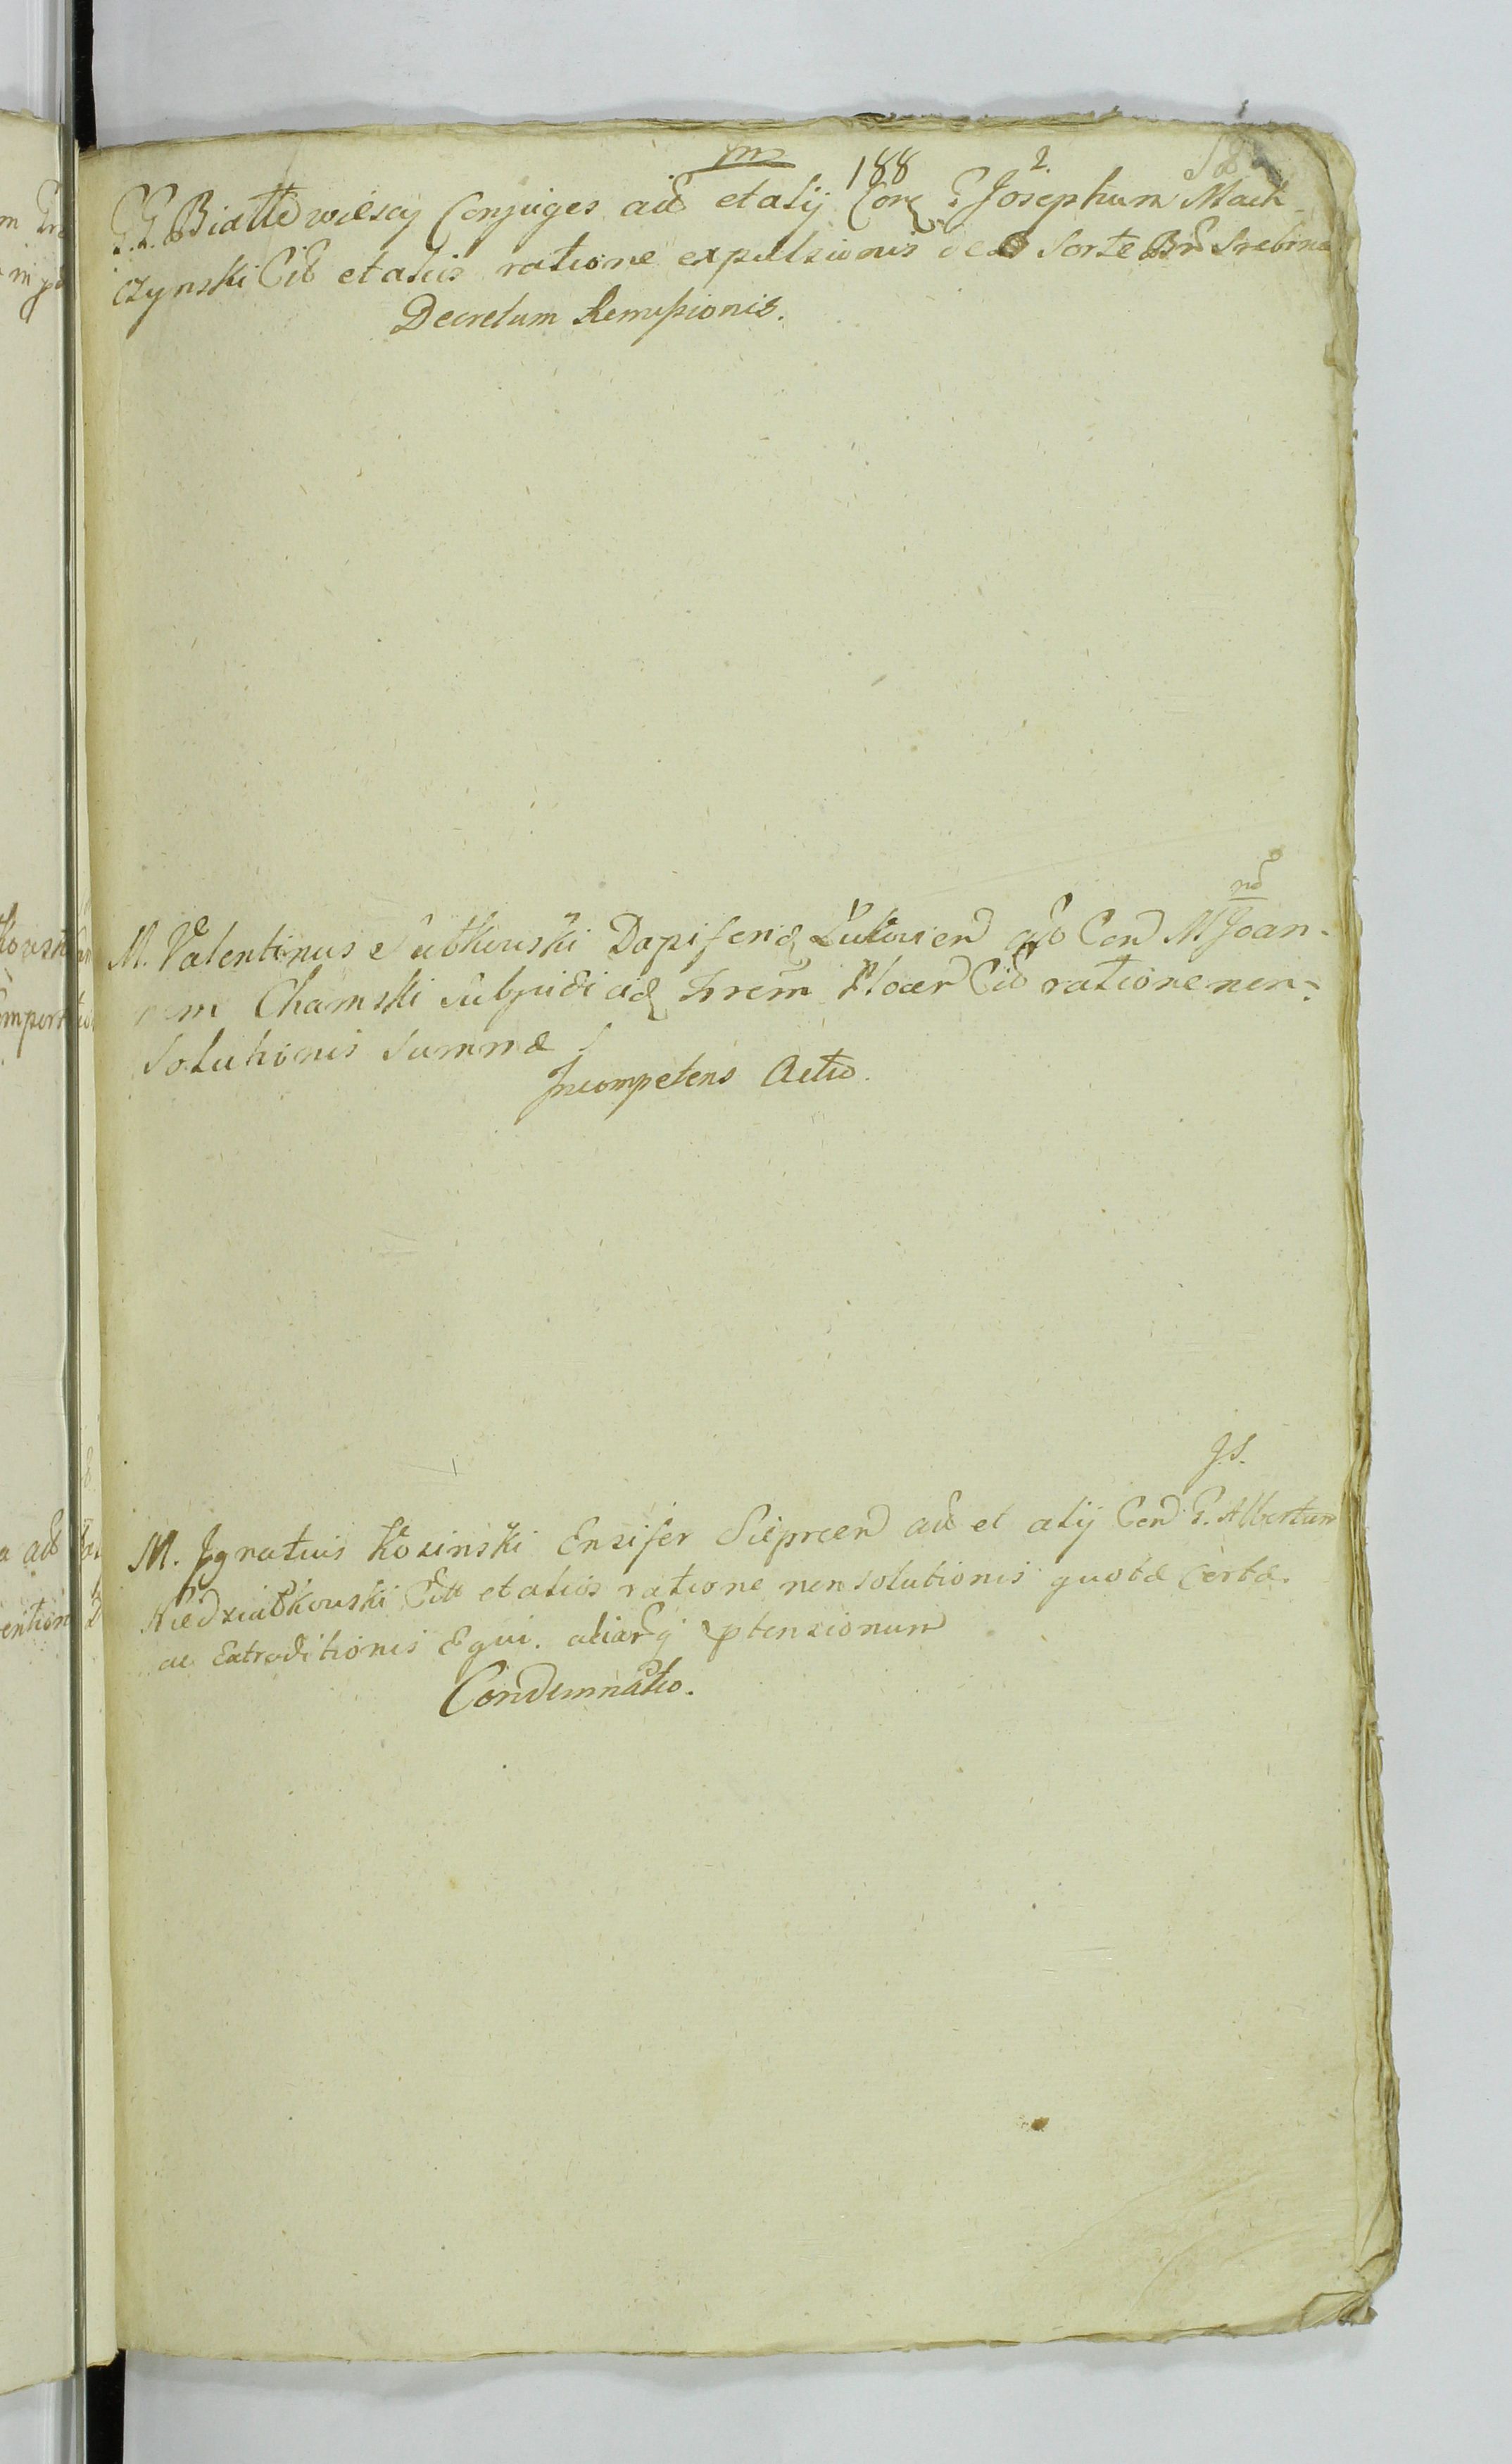 m 188 2.
G.G. Białłe wilscy Conjuges act et alij Cora G Josephum Mach
czynski Cit et aliis ratione expulsionis de Sorte Bnr Srebrna
Decretum Remissionis.
nd
M. Valentinus Sutkouski Dapiferid Łukovien act Con M Joan-
nem Chamski Subjudicid Trem Plocen Cit ratione non-
Solutionis Summæ
Incompetens Actio.
J.S.
M. Jgnatius Kosinski Ensifer Sieprcen act et alij Con G. Albertum
Niedziałkouski Citt et alios ratione nonsolutionis quotæ certæ.
ac Extraditionis Equi. aliarq ptensionum
Condemnatio.